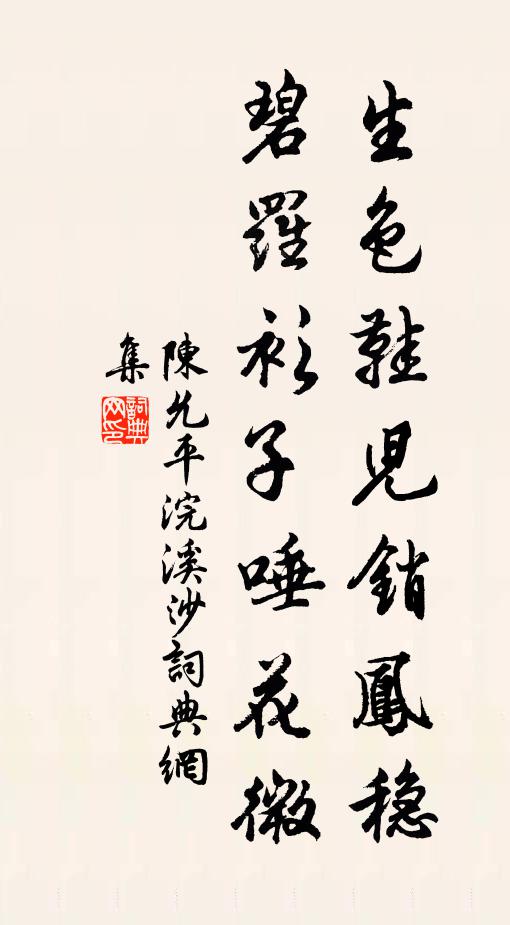 生色鞋兒銷鳳穩
碧羅衫子唾花微
陳允平浣溪沙詞典網
集
詞典網印